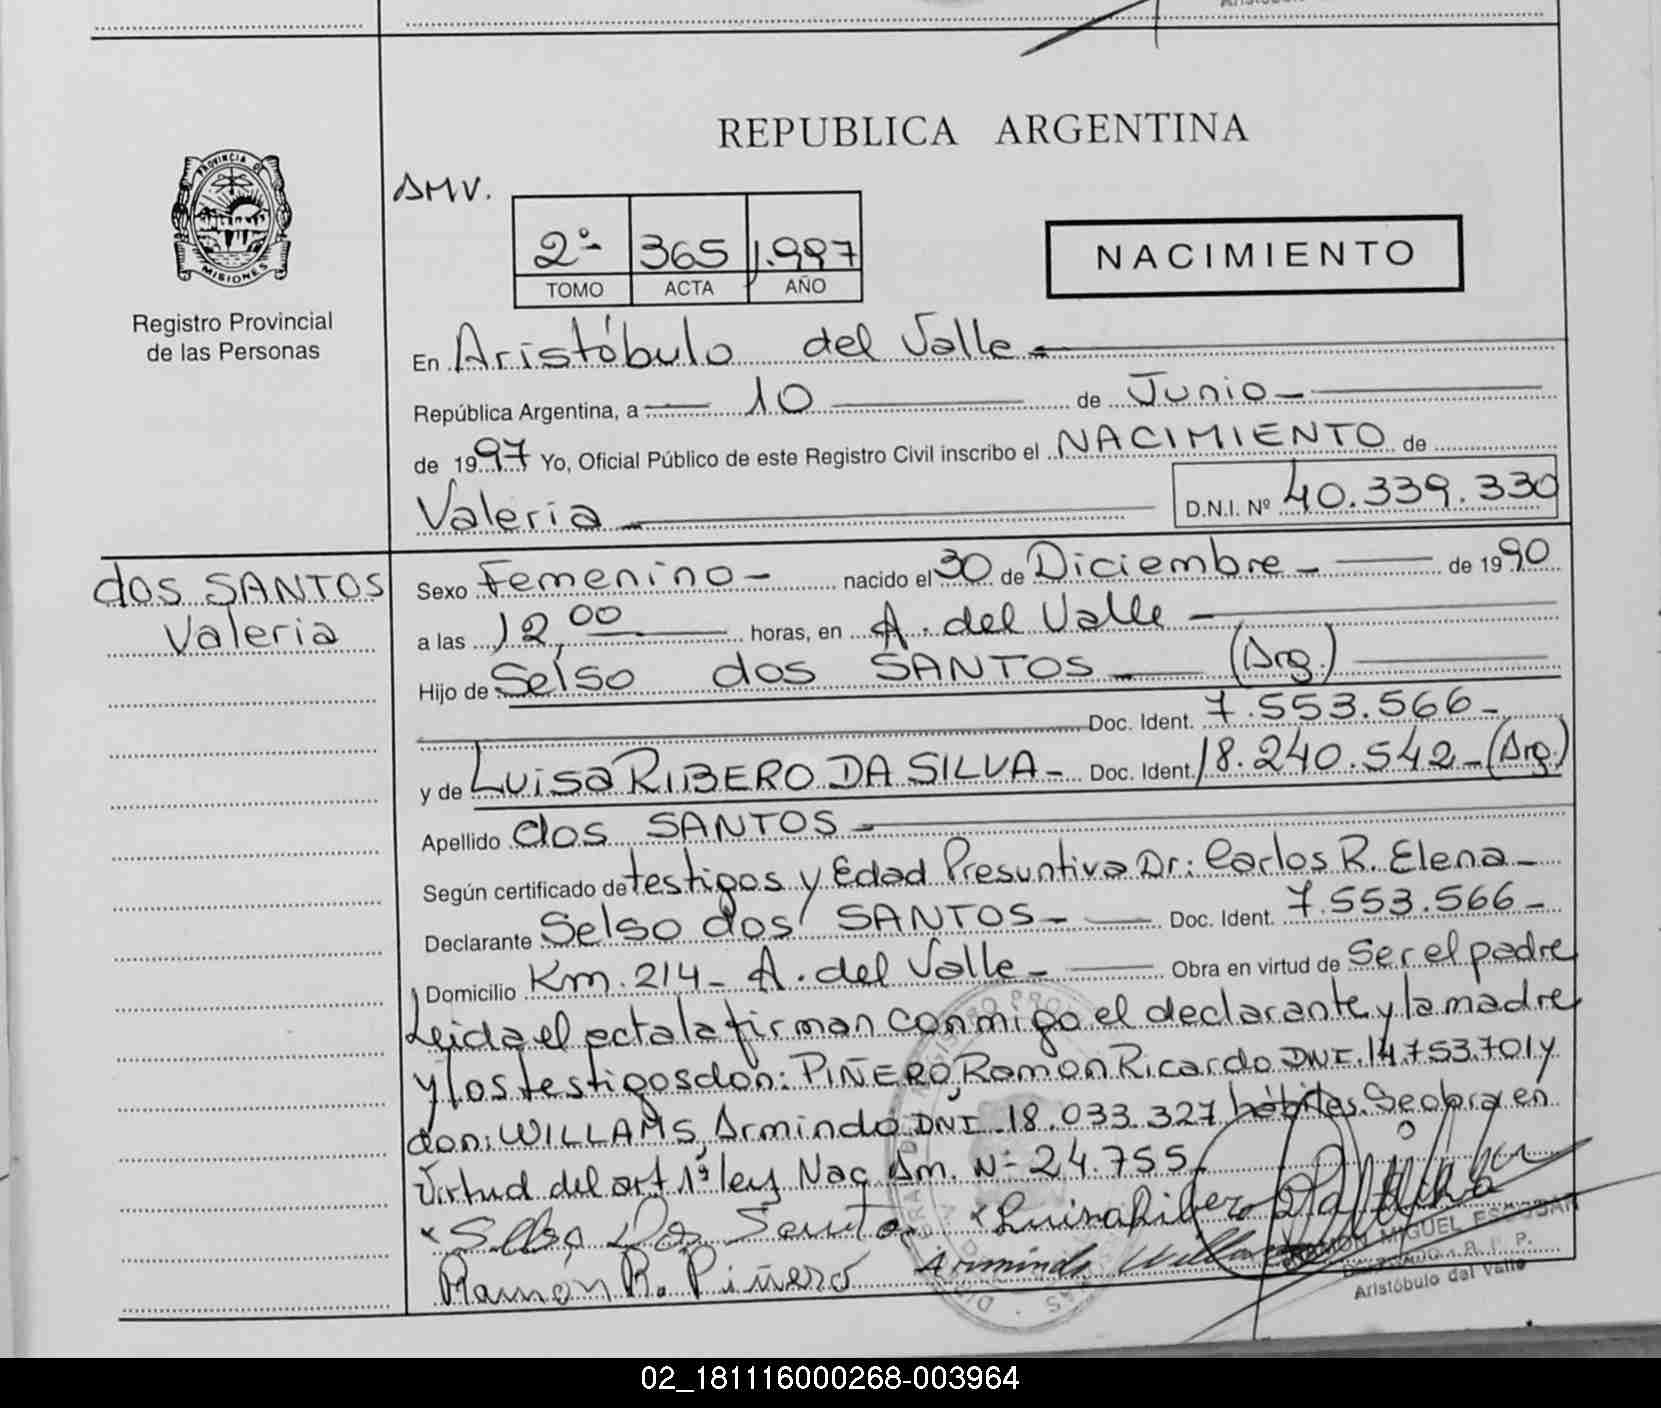 REPUBLICA ARGENTINA
PROVINCIA DE
MISIONES
Registro Provincial
de las Personas
AMV.
2º 365 1.997
TOMO ACTA AÑO
NACIMIENTO
En Aristóbulo del Valle
República Argentina, a 10 de Junio
de 1997 Yo, Oficial Público de este Registro Civil inscribo el NACIMIENTO de
Valeria D.N.I. Nº 40.339.330
dos SANTOS
Valeria
Sexo Femenino nacido el 30 de Diciembre de 1990
a las 12,00 horas, en A. del Valle
Hijo de Selso dos SANTOS (Arg.)
Doc. Ident. 7.553.566
y de Luisa RIBERO DA SILVA Doc. Ident. 18.240.542 (Arg.)
Apellido dos SANTOS
Según certificado de testigos y Edad Presuntiva Dr: Carlos R. Elena
Declarante Selso dos SANTOS Doc. Ident. 7.553.566
Domicilio Km. 214 A. del Valle Obra en virtud de Ser el padre
Leida el acta la firman conmigo el declarante y la madre
y los testigos don: PIÑERO, Ramon Ricardo DNI. 14.753.701 y
don: WILLAMS, Armindo DNI. 18.033.327 hábiles. Se obra en
virtud del art 1º ley Nac Am. Nº 24.755.
x Selso Dos Santos x Luisa Ribero Da Silva
Ramón R. Piñero Armindo
RAMON MIGUEL ESCOBAR
R. P.
Aristóbulo del Valle
02_181116000268-003964